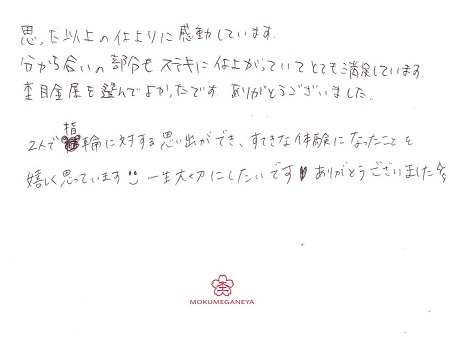 思った以上の仕上りに感動しています。
分かち合いの部分もステキに仕上がっていてとても満足しています。
杢目金屋を選んでよかったです。ありがとうございました。
指
2人で輪に対する思い出ができ、すてきな体験になったことを
嬉しく思っています 一生大切にしたいです ありがとうございました
杢
MOKUMEGANEYA